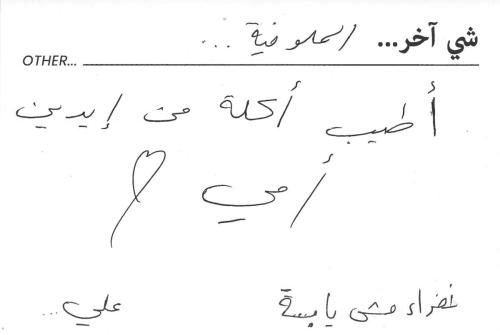 شي آخر... الملوخية...
OTHER...
أطيب أكلة من إيدين
أمي
خضراء مش يابسة
علي...